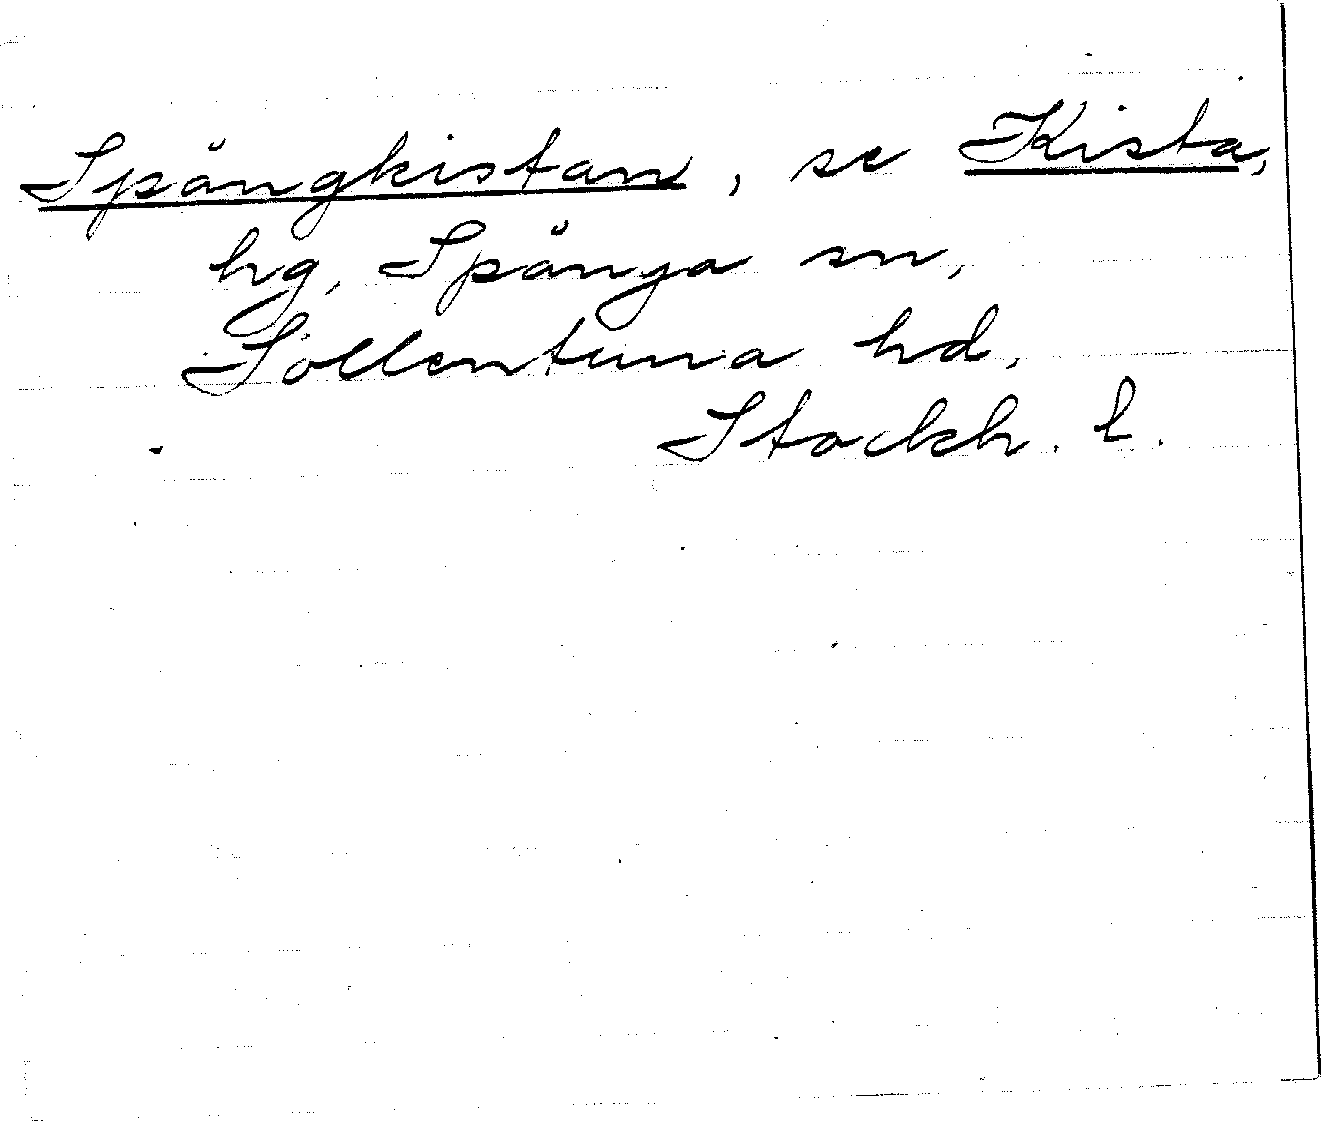 Spångkistan, se Kista,
hg, Spånga sn,
Sollentuna hd,
Stockh. l.